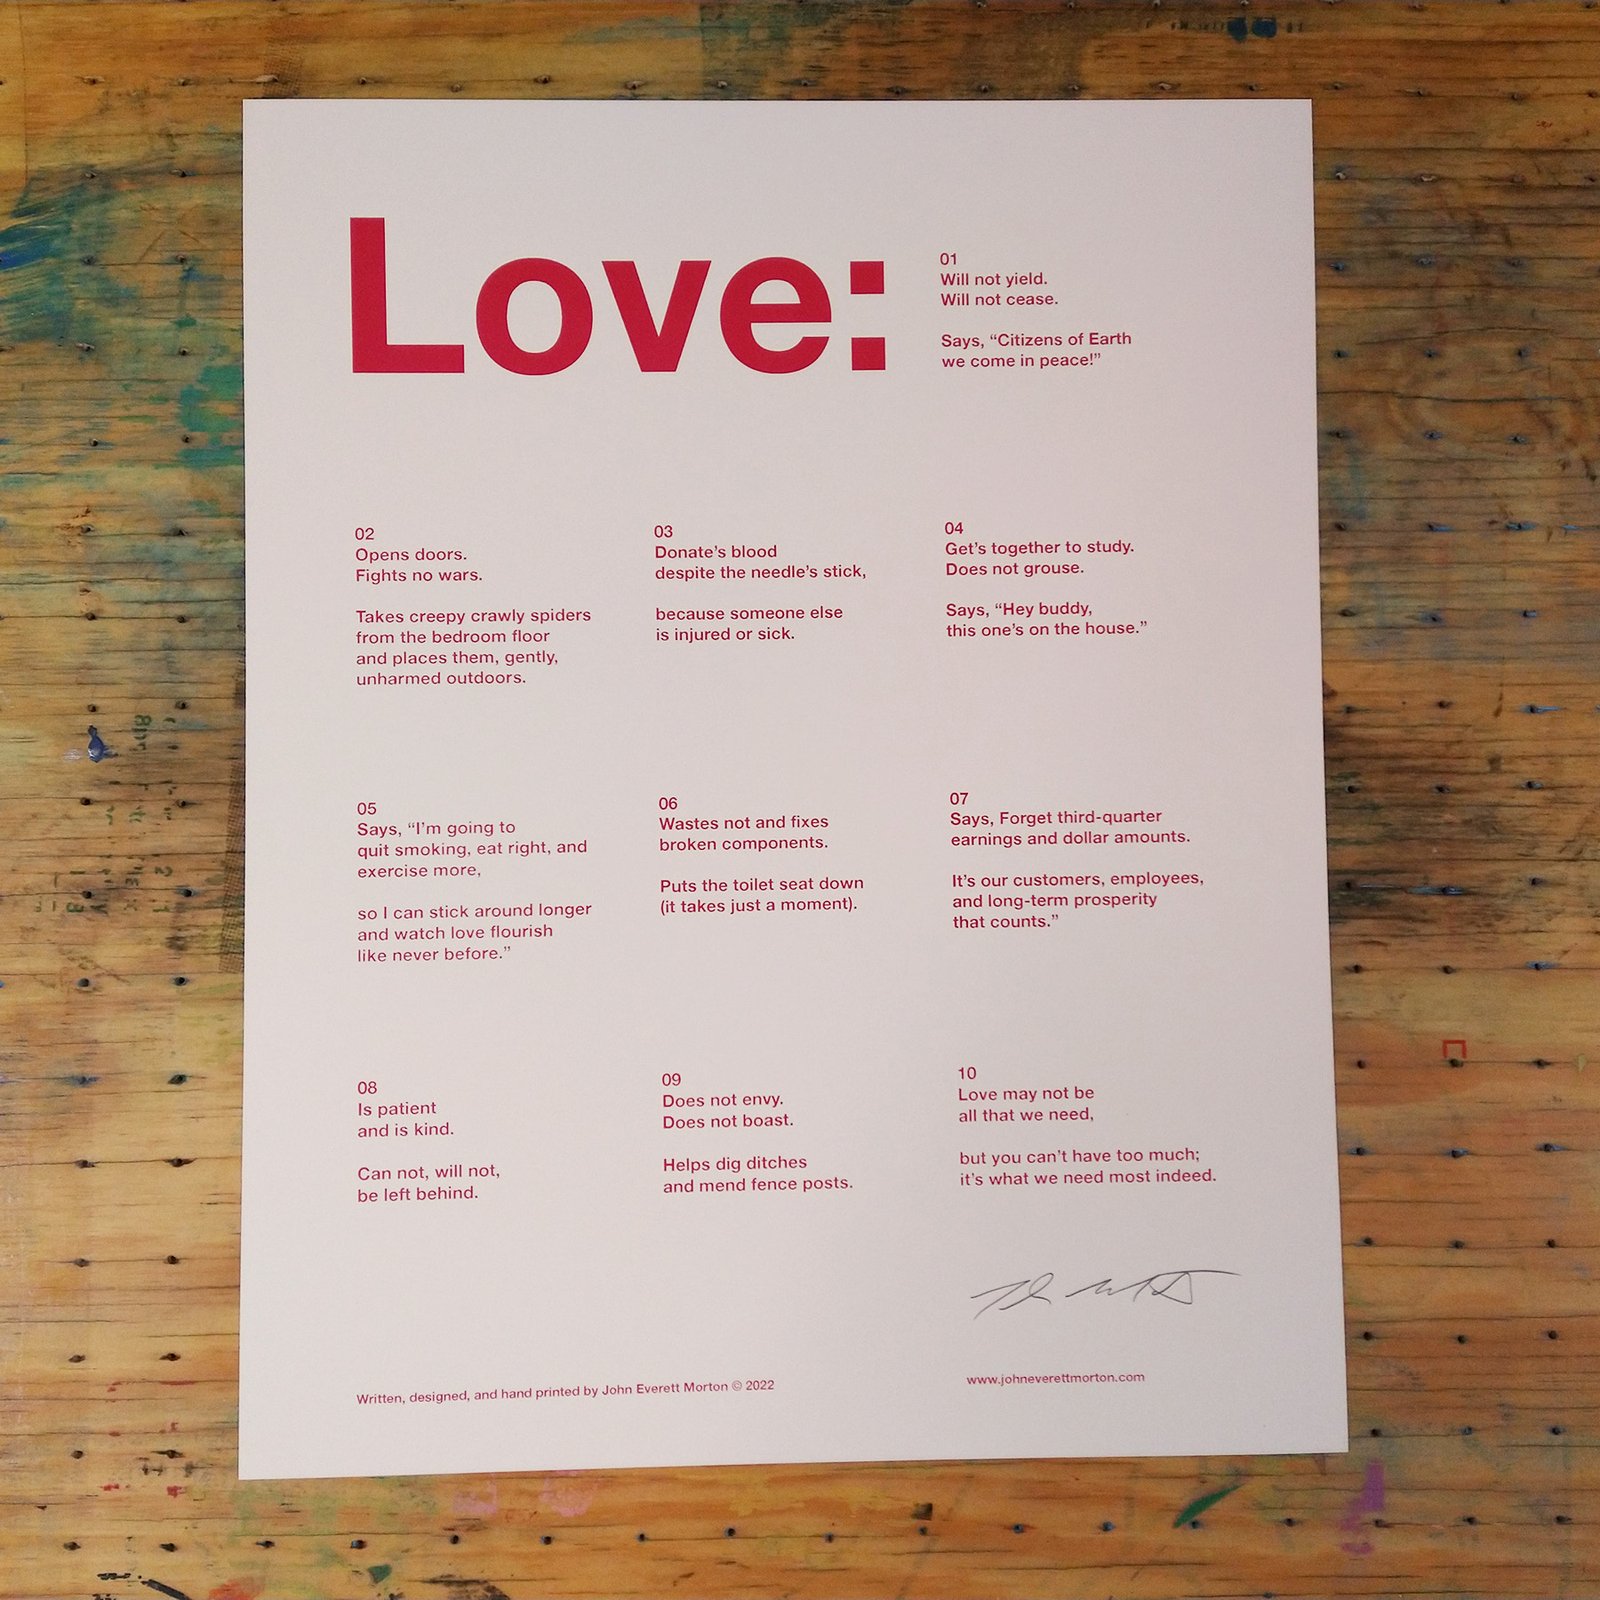 Love:
01
Will not yield.
Will not cease.
Says, “Citizens of Earth
we come in peace!”
02
Opens doors.
Fights no wars.
Takes creepy crawly spiders
from the bedroom floor
and places them, gently,
unharmed outdoors.
03
Donate’s blood
despite the needle’s stick,
because someone else
is injured or sick.
04
Get’s together to study.
Does not grouse.
Says, “Hey buddy,
this one’s on the house.”
05
Says, “I’m going to
quit smoking, eat right, and
exercise more,
so I can stick around longer
and watch love flourish
like never before.”
06
Wastes not and fixes
broken components.
Puts the toilet seat down
(it takes just a moment).
07
Says, Forget third-quarter
earnings and dollar amounts.
It’s our customers, employees,
and long-term prosperity
that counts.”
08
Is patient
and is kind.
Can not, will not,
be left behind.
09
Does not envy.
Does not boast.
Helps dig ditches
and mend fence posts.
10
Love may not be
all that we need,
but you can’t have too much;
it’s what we need most indeed.
Written, designed, and hand printed by John Everett Morton © 2022
www.johneverettmorton.com